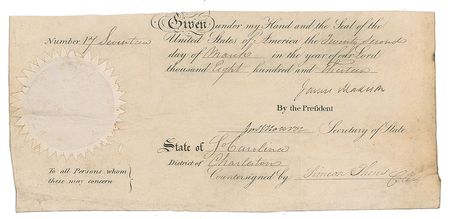 Given under my Hand and the Seal of the
Number 17 Seventeen
United States of America the Twenty Second
day of March in the year of our Lord
thousand Eight hundred and Thirteen
James Madison
By the President
Secretary of State
State of So Carolina
District of Charleston
To all Persons whom
these may concern
Countersigned by Simeon Theus